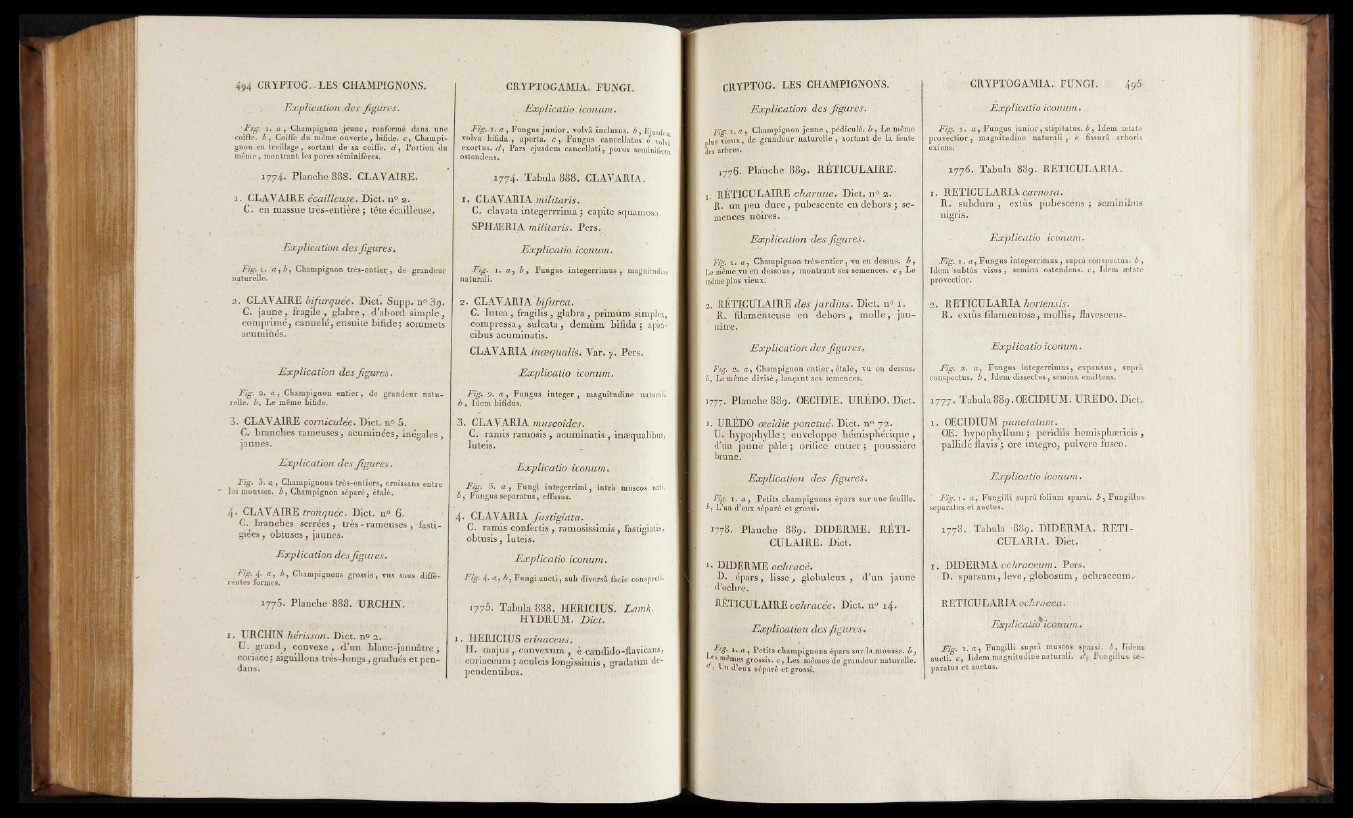 494 CRYPTOG. LES CHAMPIGNONS.
Explication des figures.
Fig. 1. a, Champignon jeune, renfermé dans une
coiffe. b, Coiffe du même ouverte, bifide. c, Champi-
gnon en treillage, sortant de sa coiffe. d, Portion du
même, montrant les pores séminifères.
1774. Planche 888. CLAVAIRE.
1. CLAVAIRE écailleuse. Dict. n° 2.
C. en massue très-entière; tête écailleuse.
Explication des figures.
Fig. 1. a, b, Champignon très-entier, de grandeur
naturelle.
2. CLAVAIRE bifurquée. Dict. Supp. n° 39.
C. jaune, fragile, glabre, d'abord simple,
comprimé, cannelé, ensuite bifide; sommets
acuminés.
Explication des figures.
Fig. 2. a, Champignon entier, de grandeur natu-
relle. b, Le même bifide.
3. CLAVAIRE corniculée. Dict. n° 5.
C. branches rameuses, acuminées, inégales,
jaunes.
Explication des figures.
Fig. 3. a, Champignons très-entiers, croissans entre
les mousses. b, Champignon séparé, étalé.
4. CLAVAIRE tronquée. Dict. n° 6.
C. branches serrées, très-rameuses, fasti-
giées, obtuses, jaunes.
Explication des figures.
Fig. 4. a, b, Champignons grossis, vus sous diffé-
rentes formes.
1775. Planche 888. URCHIN.
1. URCHIN hérisson. Dict. n° 2.
U. grand, convexe, d'un blanc-jaunâtre,
coriace; aiguillons très-longs, gradués et pen-
dans.
CRYPTOGAMIA. FUNGI.
Explicatio iconum.
Fig. 1. a, Fungus junior, volvâ inclusus. b, Ejusdem
volva bifida, aperta. c, Fungus cancellatus è volvâ
exortus. d, Pars ejusdem cancellati, poros seminiferos
ostendens.
1774. Tabula 888. CLAVARIA.
1. CLAVARIA militaris.
C. clavata integerrrima; capite squamoso.
SPHÆRIA militaris. Pers.
Explicatio iconum.
Fig. 1. a, b, Fungus integerrimus, magnitudine
naturali.
2. CLAVARIA bifurca.
C. lutea, fragilis, glabra, primùm simplex,
compressa, sulcata, demùm bifida; api-
cibus acuminatis.
CLAVARIA inæqualis. Var. γ. Pers.
Explicatio iconum.
Fig. 2. a, Fungus integer, magnitudine naturali.
b, Idem bifidus.
3. CLAVARIA muscoides.
C. ramis ramosis, acuminatis, inæqualibus,
luteis.
Explicatio iconum.
Fig. 3. a, Fungi integerrimi, intrà muscos
b, Fungus separatus, effusus.
4. CLAVARIA fastigiata.
C. ramis confertis, ramosissimis, fastigiatis,
obtusis, luteis.
Explicatio iconum.
Fig. 4. a, b, Fungi aucti, sub diversâ facie conspecti.
1775. Tabula 888. HERICIUS. Lamk.
HYDRUM. Dict.
1. HERICIUS erinaceus.
H. majus, convexum, è candido-flavicans,
coriaceum; aculeis longissimis, gradatim de-
pendentibus.
CRYPTOG. LES CHAMPIGNONS.
Explication des figures.
Fig. 1. a, Champignon jeune, pédiculé. b, Le même
plus vieux, de grandeur naturelle, sortant de la fente
des arbres.
1776. Planche 889. RÉTICULAIRE.
1. RÉTICULAIRE charnue. Dict. n° 2.
R. un peu dure, pubescente en dehors; se-
mences noires.
Explication des figures.
Fig. 1. a, Champignon très-entier, vu en dessus. b,
Le même vu en dessous, montrant ses semences. c, Le
même plus vieux.
2. RÉTICULAIRE des jardins. Dict. n° 1.
R. filamenteuse en dehors, molle, jau-
nâtre.
Explication des figures.
Fig. 2. a, Champignon entier, étalé, vu en dessus.
b, Le même divisé, lançant ses semences.
1777. Planche 889. OECIDIE. URÉDO. Dict.
1. URÉDO œcidie ponctué. Dict. n° 72.
U. hypophylle; enveloppe hémisphérique,
d'un jaune pâle; orifice entier; poussière
brune.
Explication des figures.
Fig. 1. a, Petits champignons épars sur une feuille.
b, L'un d'eux séparé et grossi.
1778. Planche 889. DIDERME. RÉTI-
CULAIRE. Dict.
1. DIDERME ochracé.
D. épars, lisse, globuleux, d'un jaune
d'ochre.
RÉTICULAIRE ochracée. Dict. n° 14.
Explication des figures.
Fig. 1. a, Petits champignons épars sur la mousse. b,
Les mêmes grossis. c, Les mêmes de grandeur naturelle.
d, Un d'eux séparé et grossi.
CRYPTOGAMIA. FUNGI. 495
Explicatio iconum.
Fig. 1. a, Fungus junior, stipitatus. b, Idem ætate
provectior, magnitudine naturali, è fissurâ arboris
exiens.
1776. Tabula 889. RETICULARIA.
1. RETICULARIA carnosa.
R. subdura, extùs pubescens; seminibus
nigris.
Explicatio iconum.
Fig. 1. a, Fungus integerrimus, suprà conspectus. b,
Idem subtùs visus, semina ostendens. c, Idem ætate
provectior.
2. RETICULARIA hortensis.
R. extùs filamentosa, mollis, flavescens.
Explicatio iconum.
Fig. 2. a, Fungus integerrimus, expansus, suprà
conspectus. b, Idem dissectus, semina emittens.
1777. Tabula 889. OECIDIUM. UREDO. Dict.
1. OECIDIUM punctatum.
OE. hypophyllum; peridiis hemisphæricis,
pallidè flavis; ore integro, pulvere fusco.
Explicatio iconum.
Fig. 1. a, Fungilli suprà folium sparsi. b, Fungillus
separatus et auctus.
1778. Tabula 889. DIDERMA. RETI-
CULARIA. Dict.
1. DIDERMA ochraceum. Pers.
D. sparsum, leve, globosum, ochraceum.
RETICULARIA ochracea.
Explicatio iconum.
Fig. 1. a, Fungilli suprà muscos sparsi. b, Iidem
aucti. c, Iidem magnitudine naturali. d, Fungillus se-
paratus et auctus.